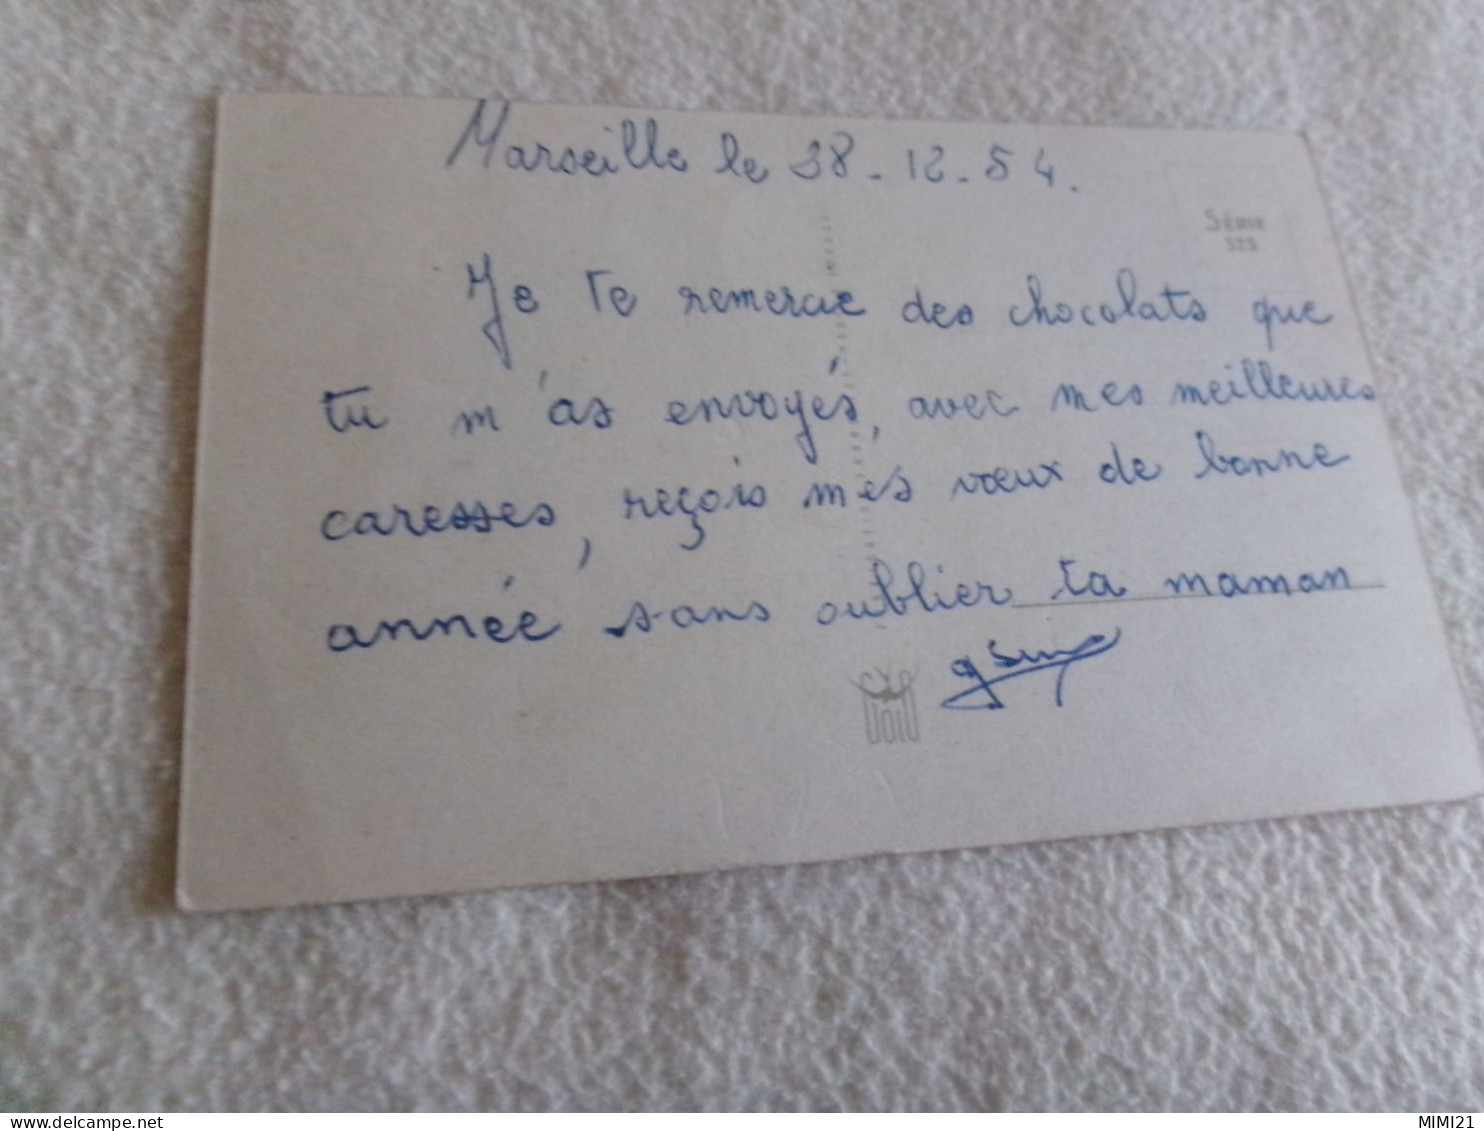 Marseille le 28-12-54.
Série
323
Je te remercie des chocolats que
tu m'as envoyés, avec mes meilleures
caresses, reçois mes vœux de bonne
année sans oublier ta maman
MIMI21